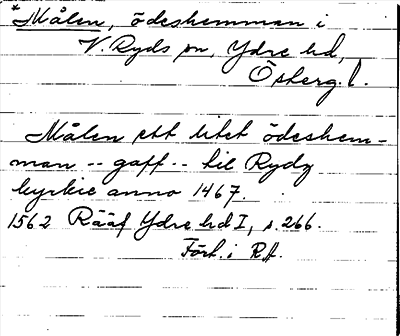 *Målen, ödeshemman i
V. Ryds sn, Ydre hd,
Österg. l.
Målen ett litet ödeshem-
man -- gaff -- til Rydz
kyrkie anno 1467.
1562 Rääf Ydre hd I, s. 266.
Fört. i RA.